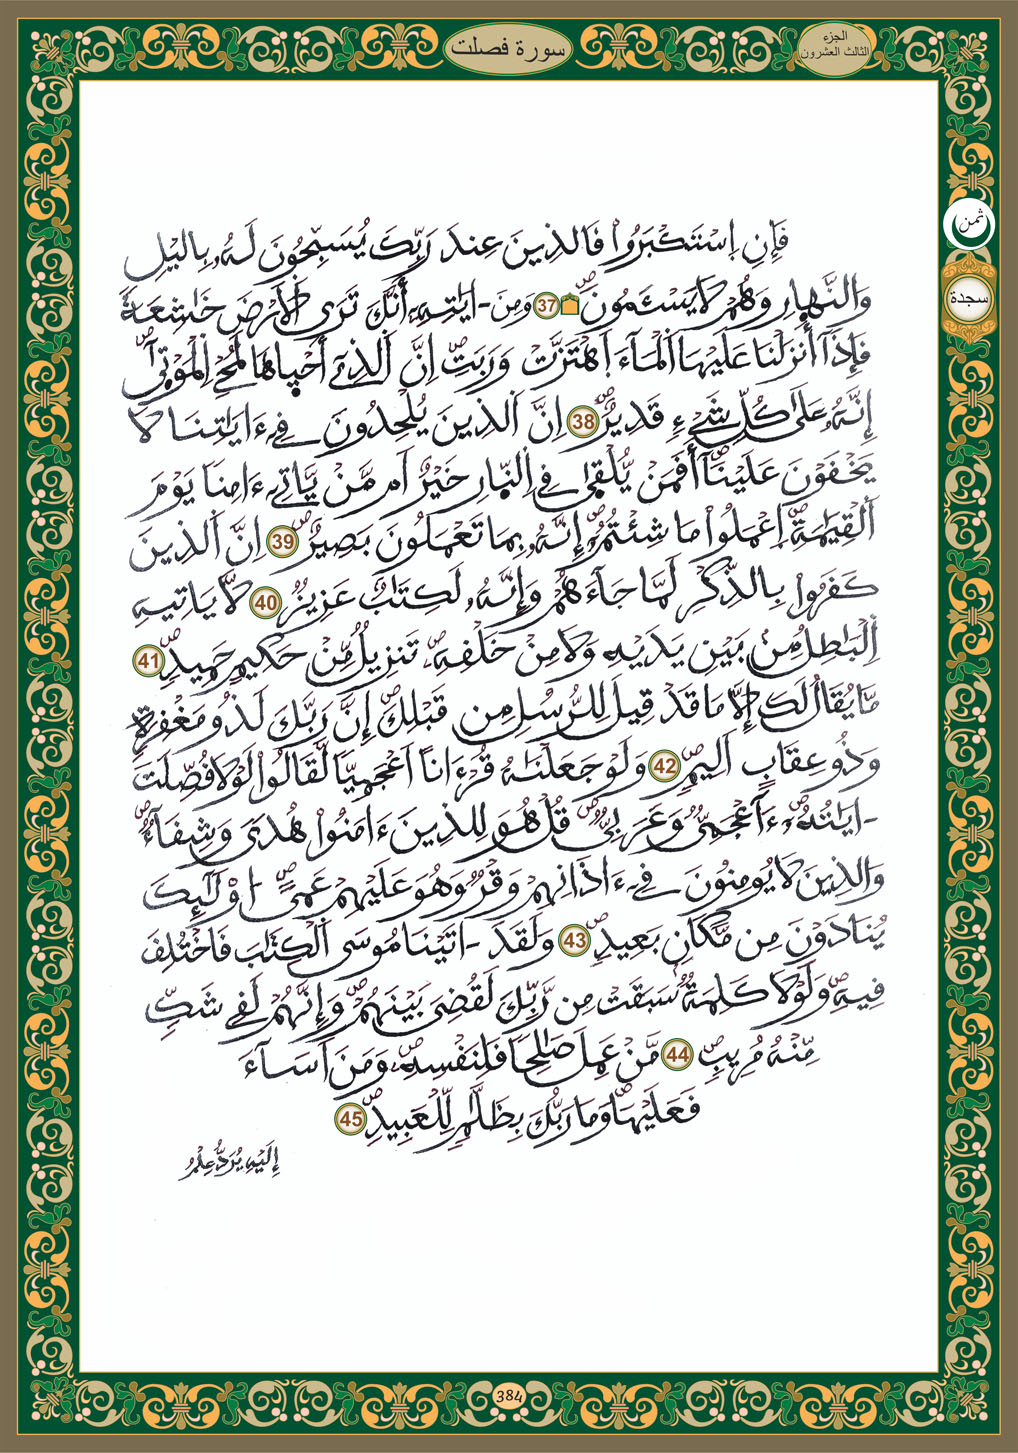 الجزء
الثالث العشرون
سورة فصلت
ثمن
سجدة
فَإِنِ اِسْتَكْبَرُواْ فَالذِينَ عِندَ رَبِّكَ يُسَبِّحُونَ لَهُۥ بِاليْلِ
وَالنَّهِارِ وَهُمْ لَا يَسْـَٔمُونَ ۩ 37 وَمِنَ ايَٰتِهِۦٓ أَنَّكَ تَرَى اَلَارْضَ خَٰشِعَةٗ
فَإِذَآ أَنزَلْنَا عَلَيْهَا اَلْمَآءَ اَهْتَزَّتْ وَرَبَتِۖ اِنَّ اَلذِےٓ أَحْي۪اهَا لَمُحْيِ اِلْمَوْت۪ىٰٓۖ
إِنَّهُۥ عَلَىٰ كُلِّ شَےْءٖ قَدِيرٌۖ 38 اِنَّ اَلذِينَ يُلْحِدُونَ فِےٓ ءَايَٰتِنَا لَا
يَخْفَوْنَ عَلَيْنَآۖ أَفَمَنْ يُّلْق۪ىٰ فِے اِلنّ۪ارِ خَيْرٌ اَم مَّنْ يَّاتِےٓ ءَامِناٗ يَوْمَ
اَلْقِيَٰمَةِۖ اِعْمَلُواْ مَا شِئْتُمُۥٓۖ إِنَّهُۥ بِمَا تَعْمَلُونَ بَصِيرٌۖ 39 اِنَّ اَلذِينَ
كَفَرُواْ بِالذِّكْرِ لَمَّا جَآءَهُمْ وَإِنَّهُۥ لَكِتَٰبٌ عَزِيزٞ 40 لَّا يَاتِيهِ
اِلْبَٰطِلُ مِنۢ بَيْنِ يَدَيْهِ وَلَا مِنْ خَلْفِهِۦۖ تَنزِيلٞ مِّنْ حَكِيمٍ حَمِيدٖۖ 41
مَّا يُقَالُ لَكَ إِلَّا مَا قَدْ قِيلَ لِلرُّسُلِ مِن قَبْلِكَۖ إِنَّ رَبَّكَ لَذُو مَغْفِرَةٖ
وَذُو عِقَابٍ اَلِيمٖۖ 42 وَلَوْ جَعَلْنَٰهُ قُرْءَاناً اَعْجَمِيّاٗ لَّقَالُواْ لَوْلَا فُصِّلَتَ
ايَٰتُهُۥٓۖ ءَآعْجَمِيّٞ وَعَرَبِيّٞۖ قُلْ هُوَ لِلذِينَ ءَامَنُواْ هُديٗ وَشِفَآءٞۖ
وَالذِينَ لَا يُومِنُونَ فِےٓ ءَاذَانِهِمْ وَقْرٞ وَهُوَ عَلَيْهِمْ عَمىًۖ اوْلَٰٓئِكَ
يُنَادَوْنَ مِن مَّكَانِۢ بَعِيدٖۖ 43 وَلَقَدَ اتَيْنَا مُوسَى اَلْكِتَٰبَ فَاخْتُلِفَ
فِيهِۖ وَلَوْلَا كَلِمَةٞ سَبَقَتْ مِن رَّبِّكَ لَقُضِيَ بَيْنَهُمْۖ وَإِنَّهُمْ لَفِے شَكّٖ
مِّنْهُ مُرِيبٖۖ 44 مَّنْ عَمِلَ صَٰلِحاٗ فَلِنَفْسِهِۦۖ وَمَنَ اَسَآءَ
فَعَلَيْهَاۖ وَمَا رَبُّكَ بِظَلَّٰمٖ لِّلْعَبِيدِۖ 45
إِلَيْهِ يُرَدُّ عِلْمُ
384